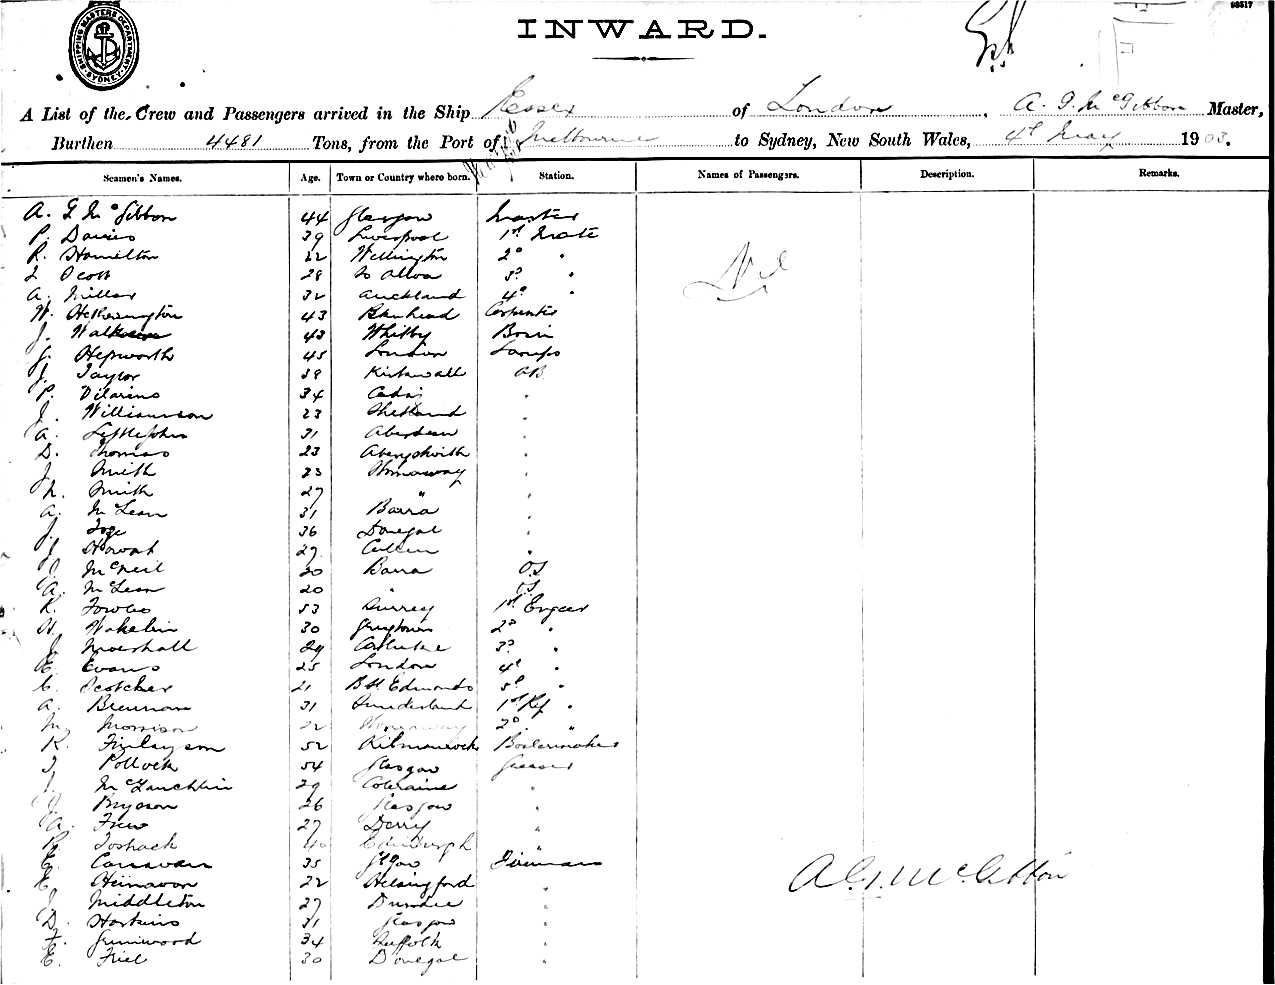 98517
SHIPPING MASTERS DEPARTMENT SYDNEY
INWARD.
A List of the Crew and Passengers arrived in the Ship Essex of London, A. G. McGibbon Master,
Burthen 4481 Tons, from the Port of Melbourne to Sydney, New South Wales, 4th May 1903.
Seamen's Names. Age. Town or Country where born. Station. Names of Passengers. Description. Remarks.
A. G McGibbon 44 Glasgow Master
P. Davies 39 Liverpool 1st Mate
R. Hamilton 22 Wellington 2d "
Scott 28 Alloa 3d "
Nil
A. Miller 32 Auckland 4th "
W. Hetherington 43 Carpenter
J. 43 Whitby Bosn
J. Hepworth 45 London Lamps
J. Taylor 39 Kirkwall AB
P. Vilarino 34 Cadiz "
J. Williamson 23 Shetland "
A. Littlejohn 31 Aberdeen "
D. Thomas 23 Aberystwith "
J. Smith 23 Stornoway "
N. Smith 27 " "
A. McLean 31 Barra "
J. 36 Donegal "
J. Howat 27 Cullen "
J. McNeil 20 Barra OS
A. McLean 20 " OS
R. Fowles 53 Surrey 1st Engeer
H. Wakelin 30 2d "
J. Marshall 29 Carluke 3d "
E. Evans 25 London 4th "
C. Scotcher 21 B St Edmonds 5th "
A. Brennan 31 Sunderland 1st Ref "
M. Morrison 22 Stornoway 2d "
R. Finlayson 52 Kilmarnock Boilermaker
J. Pollock 54 Glasgow Greaser
J. McLauchlin 29 Coleraine "
J. Bryson 26 Glasgow "
A. Frew 27 Derry "
R. Toshack 40 Edinburgh "
E. Canavan 35 Glgow Fireman
E. Heinavon 22 Helsingford "
A. G. McGibbon
J. Middleton 27 Dundee "
D. Hoskins 31 Glasgow "
F. Grimwood 34 Suffolk "
E. Friel 30 Donegal "